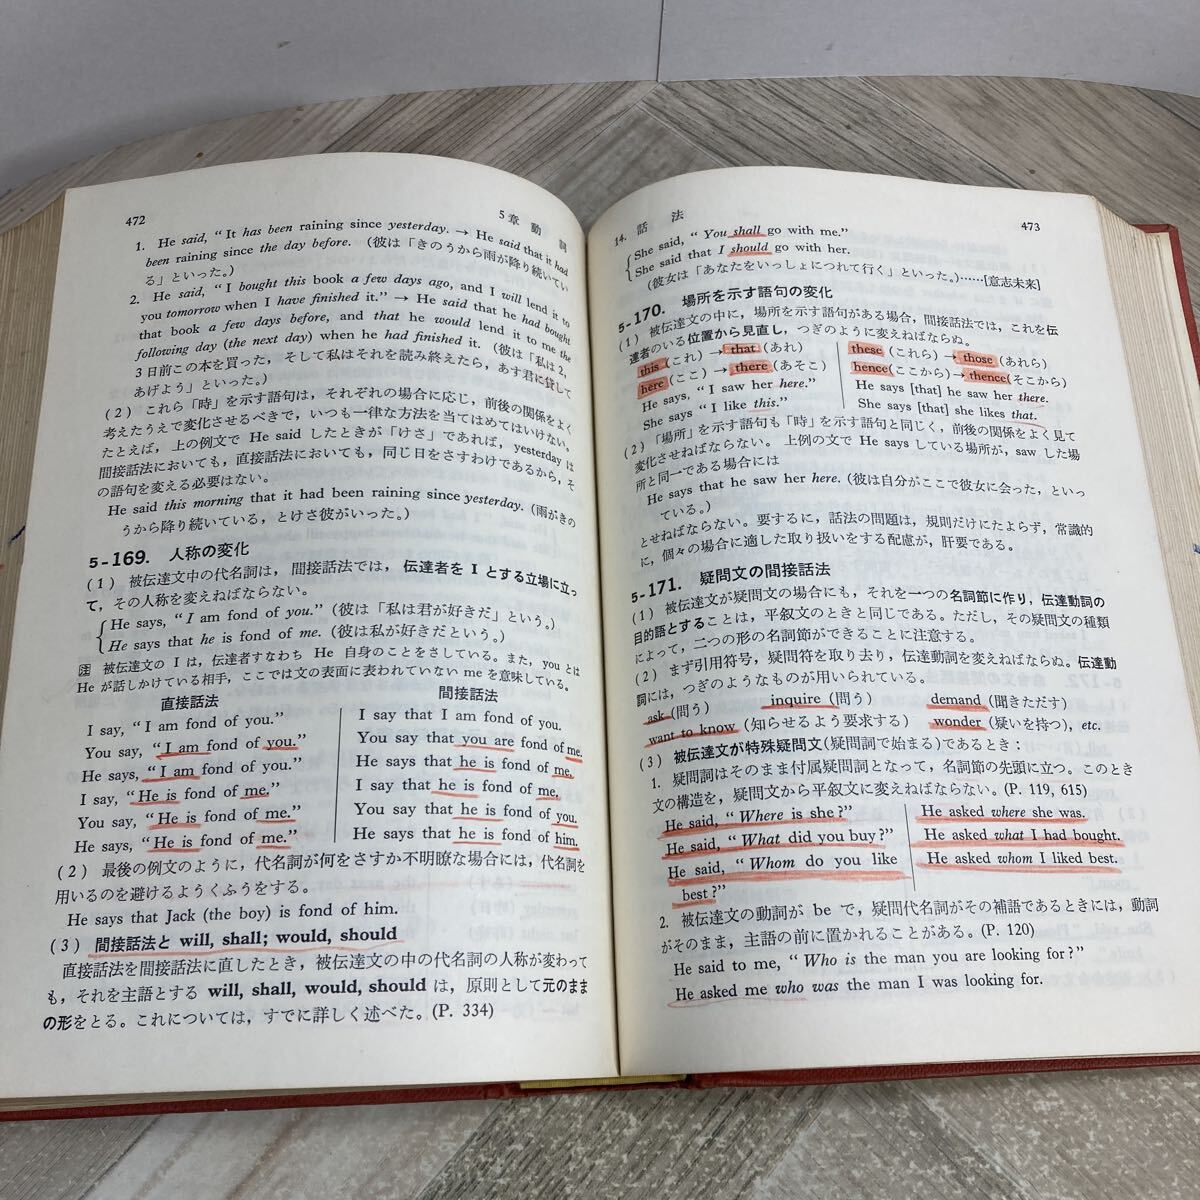 472
5章 動詞
1. He said, “It has been raining since yesterday. → He said that it had
been raining since the day before. (彼は「きのうから雨が降り続いてい
る」といった。)
2. He said, “I bought this book a few days ago, and I will lend it to
you tomorrow when I have finished it.” → He said that he had bought
that book a few days before, and that he would lend it to me the
following day (the next day) when he had finished it. (彼は「私は2,
3日前この本を買った, そして私はそれを読み終えたら, あす君に貸して
あげよう」といった。)
(2) これら「時」を示す語句は, それぞれの場合に応じ, 前後の関係をよく
考えたうえで変化させるべきで, いつも一律な方法を当てはめてはいけない。
たとえば, 上の例文で He said したときが「けさ」であれば, yesterday は
間接話法においても, 直接話法においても, 同じ日をさすわけであるから, そ
の語句を変える必要はない。
He said this morning that it had been raining since yesterday. (雨がきの
うから降り続いている, とけさ彼がいった。)
5-169. 人称の変化
(1) 被伝達文中の代名詞は, 間接話法では, 伝達者を I とする立場に立っ
て, その人称を変えねばならない。
He says, “I am fond of you.” (彼は「私は君が好きだ」という。)
He says that he is fond of me. (彼は私が好きだという。)
注 被伝達文の I は, 伝達者すなわち He 自身のことをさしている。また, you とは
He が話しかけている相手, ここでは文の表面に表われていない me を意味している。
直接話法 間接話法
I say, “I am fond of you.” I say that I am fond of you.
You say, “I am fond of you.” You say that you are fond of me.
He says, “I am fond of you.” He says that he is fond of me.
I say, “He is fond of me.” I say that he is fond of me.
You say, “He is fond of me.” You say that he is fond of you.
He says, “He is fond of me.” He says that he is fond of him.
(2) 最後の例文のように, 代名詞が何をさすか不明瞭な場合には, 代名詞を
用いるのを避けるようくふうをする。
He says that Jack (the boy) is fond of him.
(3) 間接話法と will, shall; would, should
直接話法を間接話法に直したとき, 被伝達文の中の代名詞の人称が変わって
も, それを主語とする will, shall, would, should は, 原則として元のまま
の形をとる。これについては, すでに詳しく述べた。(P. 334)
14. 話法
473
She said, “You shall go with me.”
She said that I should go with her.
(彼女は「あなたをいっしょにつれて行く」といった。)……[意志未来]
5-170. 場所を示す語句の変化
(1) 被伝達文の中に, 場所を示す語句がある場合, 間接話法では, これを伝
達者のいる位置から見直し, つぎのように変えねばならぬ。
this (これ) → that (あれ) these (これら) → those (あれら)
here (ここ) → there (あそこ) hence (ここから) → thence (そこから)
He says, “I saw her here.” He says [that] he saw her there.
She says “I like this.” She says [that] she likes that.
(2) 「場所」を示す語句も「時」を示す語句と同じく, 前後の関係をよく見て
変化させねばならない。 上例の文で He says している場所が, saw した場
所と同一である場合には
He says that he saw her here. (彼は自分がここで彼女に会った, といっ
ている。)
とせねばならない。要するに, 話法の問題は, 規則だけにたよらず, 常識的
に, 個々の場合に適した取り扱いをする配慮が, 肝要である。
5-171. 疑問文の間接話法
(1) 被伝達文が疑問文の場合にも, それを一つの名詞節に作り, 伝達動詞の
目的語とすることは, 平叙文のときと同じである。ただし, その疑問文の種類
によって, 二つの形の名詞節ができることに注意する。
(2) まず引用符号, 疑問符を取り去り, 伝達動詞を変えねばならぬ。伝達動
詞には, つぎのようなものが用いられている。
ask (問う) inquire (問う) demand (聞きただす)
want to know (知らせるよう要求する) wonder (疑いを持つ), etc.
(3) 被伝達文が特殊疑問文(疑問詞で始まる)であるとき:
1. 疑問詞はそのまま付属疑問詞となって, 名詞節の先頭に立つ。このとき
文の構造を, 疑問文から平叙文に変えねばならない。(P. 119, 615)
He said, “Where is she?” He asked where she was.
He said, “What did you buy?” He asked what I had bought.
He said, “Whom do you like He asked whom I liked best.
best?”
2. 被伝達文の動詞が be で, 疑問代名詞がその補語であるときには, 動詞
がそのまま, 主語の前に置かれることがある。(P. 120)
He said to me, “Who is the man you are looking for?”
He asked me who was the man I was looking for.